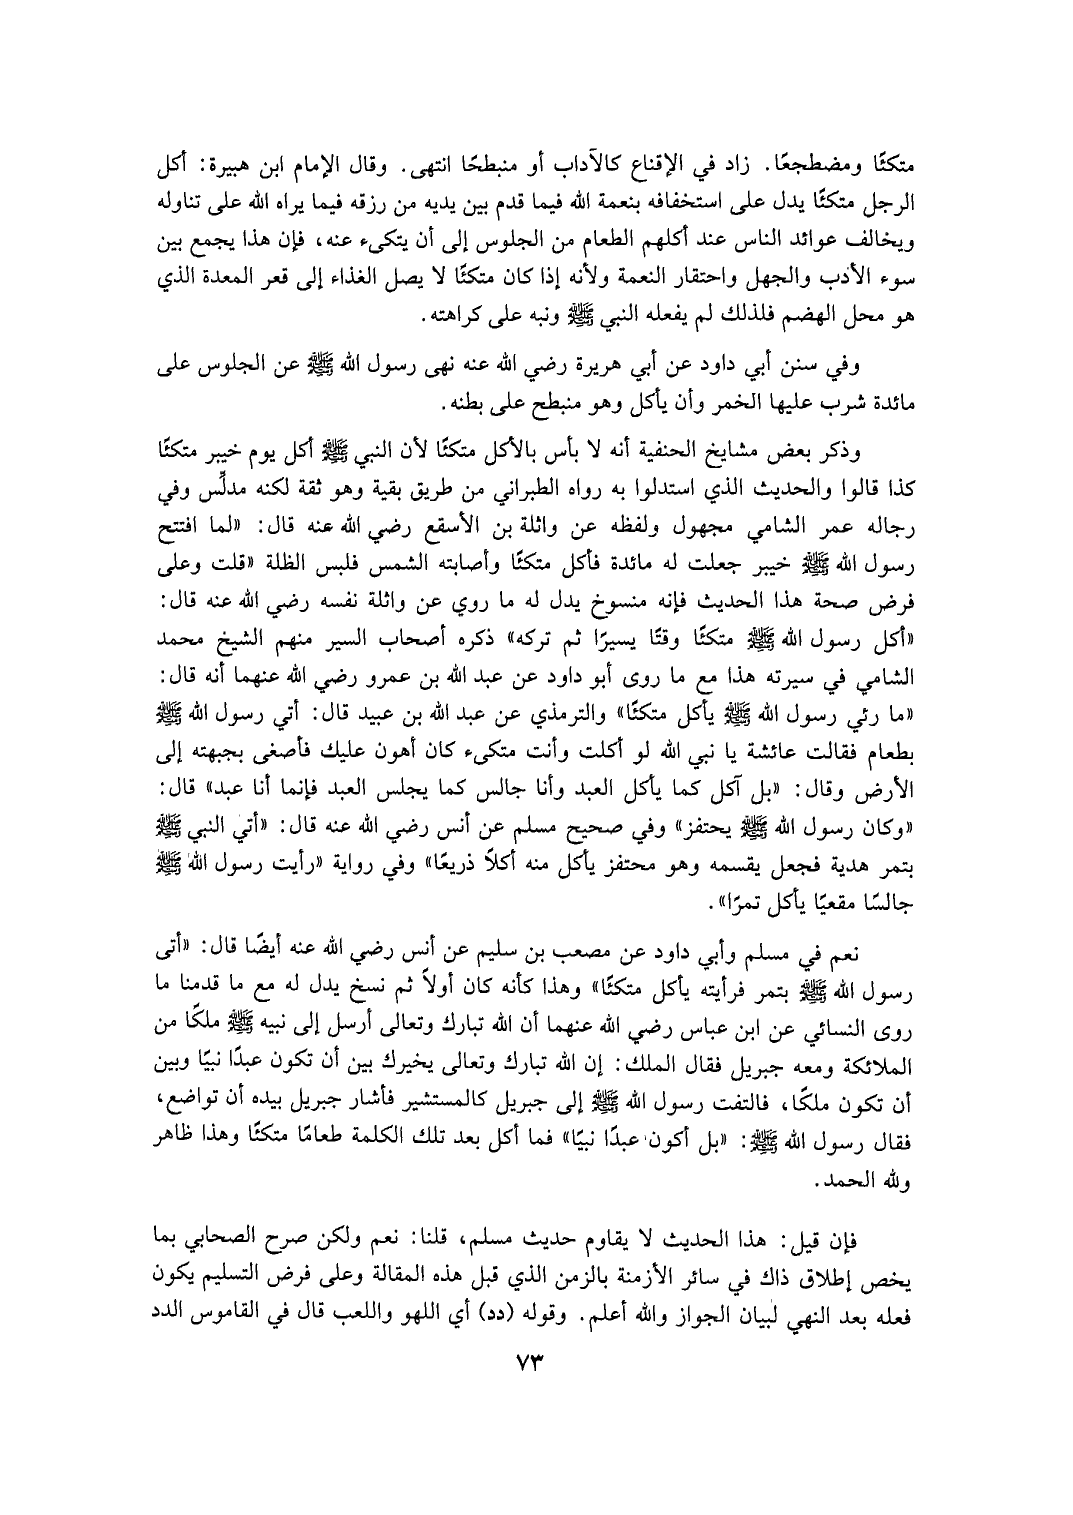 متكئًا ومضطجعًا. زاد في الإقناع كالآداب أو منبطحًا انتهى. وقال الإمام ابن هبيرة: أكل
الرجل متكئًا يدل على استخفافه بنعمة الله فيما قدم بين يديه من رزقه فيما يراه الله على تناوله
ويخالف عوائد الناس عند أكلهم الطعام من الجلوس إلى أن يتكىء عنه، فإن هذا يجمع بين
سوء الأدب والجهل واحتقار النعمة ولأنه إذا كان متكئًا لا يصل الغذاء إلى قعر المعدة الذي
هو محل الهضم فلذلك لم يفعله النبي ﷺ ونبه على كراهته.
وفي سنن أبي داود عن أبي هريرة رضي الله عنه نهى رسول الله ﷺ عن الجلوس على
مائدة شرب عليها الخمر وأن يأكل وهو منبطح على بطنه.
وذكر بعض مشايخ الحنفية أنه لا بأس بالأكل متكئًا لأن النبي ﷺ أكل يوم خيبر متكئًا
كذا قالوا والحديث الذي استدلوا به رواه الطبراني من طريق بقية وهو ثقة لكنه مدلِّس وفي
رجاله عمر الشامي مجهول ولفظه عن واثلة بن الأسقع رضي الله عنه قال: «لما افتتح
رسول الله ﷺ خيبر جعلت له مائدة فأكل متكئًا وأصابته الشمس فلبس الظلة «قلت وعلى
فرض صحة هذا الحديث فإنه منسوخ يدل له ما روي عن واثلة نفسه رضي الله عنه قال:
«أكل رسول الله ﷺ متكئًا وقتًا يسيرًا ثم تركه» ذكره أصحاب السير منهم الشيخ محمد
الشامي في سيرته هذا مع ما روى أبو داود عن عبد الله بن عمرو رضي الله عنهما أنه قال:
«ما رئي رسول الله ﷺ يأكل متكئًا» والترمذي عن عبد الله بن عبيد قال: أتي رسول الله ﷺ
بطعام فقالت عائشة يا نبي الله لو أكلت وأنت متكىء كان أهون عليك فأصغى بجبهته إلى
الأرض وقال: «بل آكل كما يأكل العبد وأنا جالس كما يجلس العبد فإنما أنا عبد» قال:
«وكان رسول الله ﷺ يحتفز» وفي صحيح مسلم عن أنس رضي الله عنه قال: «أتي النبي ﷺ
بتمر هدية فجعل يقسمه وهو محتفز يأكل منه أكلاً ذريعًا» وفي رواية «رأيت رسول الله ﷺ
جالسًا مقعيًا يأكل تمرًا».
نعم في مسلم وأبي داود عن مصعب بن سليم عن أنس رضي الله عنه أيضًا قال: «أتى
رسول الله ﷺ بتمر فرأيته يأكل متكئًا» وهذا كأنه كان أولاً ثم نسخ يدل له مع ما قدمنا ما
روى النسائي عن ابن عباس رضي الله عنهما أن الله تبارك وتعالى أرسل إلى نبيه ﷺ ملكًا من
الملائكة ومعه جبريل فقال الملك: إن الله تبارك وتعالى يخيرك بين أن تكون عبدًا نبيًا وبين
أن تكون ملكًا، فالتفت رسول الله ﷺ إلى جبريل كالمستشير فأشار جبريل بيده أن تواضع،
فقال رسول الله ﷺ: «بل أكون عبدًا نبيًا» فما أكل بعد تلك الكلمة طعامًا متكئًا وهذا ظاهر
ولله الحمد.
فإن قيل: هذا الحديث لا يقاوم حديث مسلم، قلنا: نعم ولكن صرح الصحابي بما
يخص إطلاق ذاك في سائر الأزمنة بالزمن الذي قبل هذه المقالة وعلى فرض التسليم يكون
فعله بعد النهي لبيان الجواز والله أعلم. وقوله (دد) أي اللهو واللعب قال في القاموس الدد
٧٣